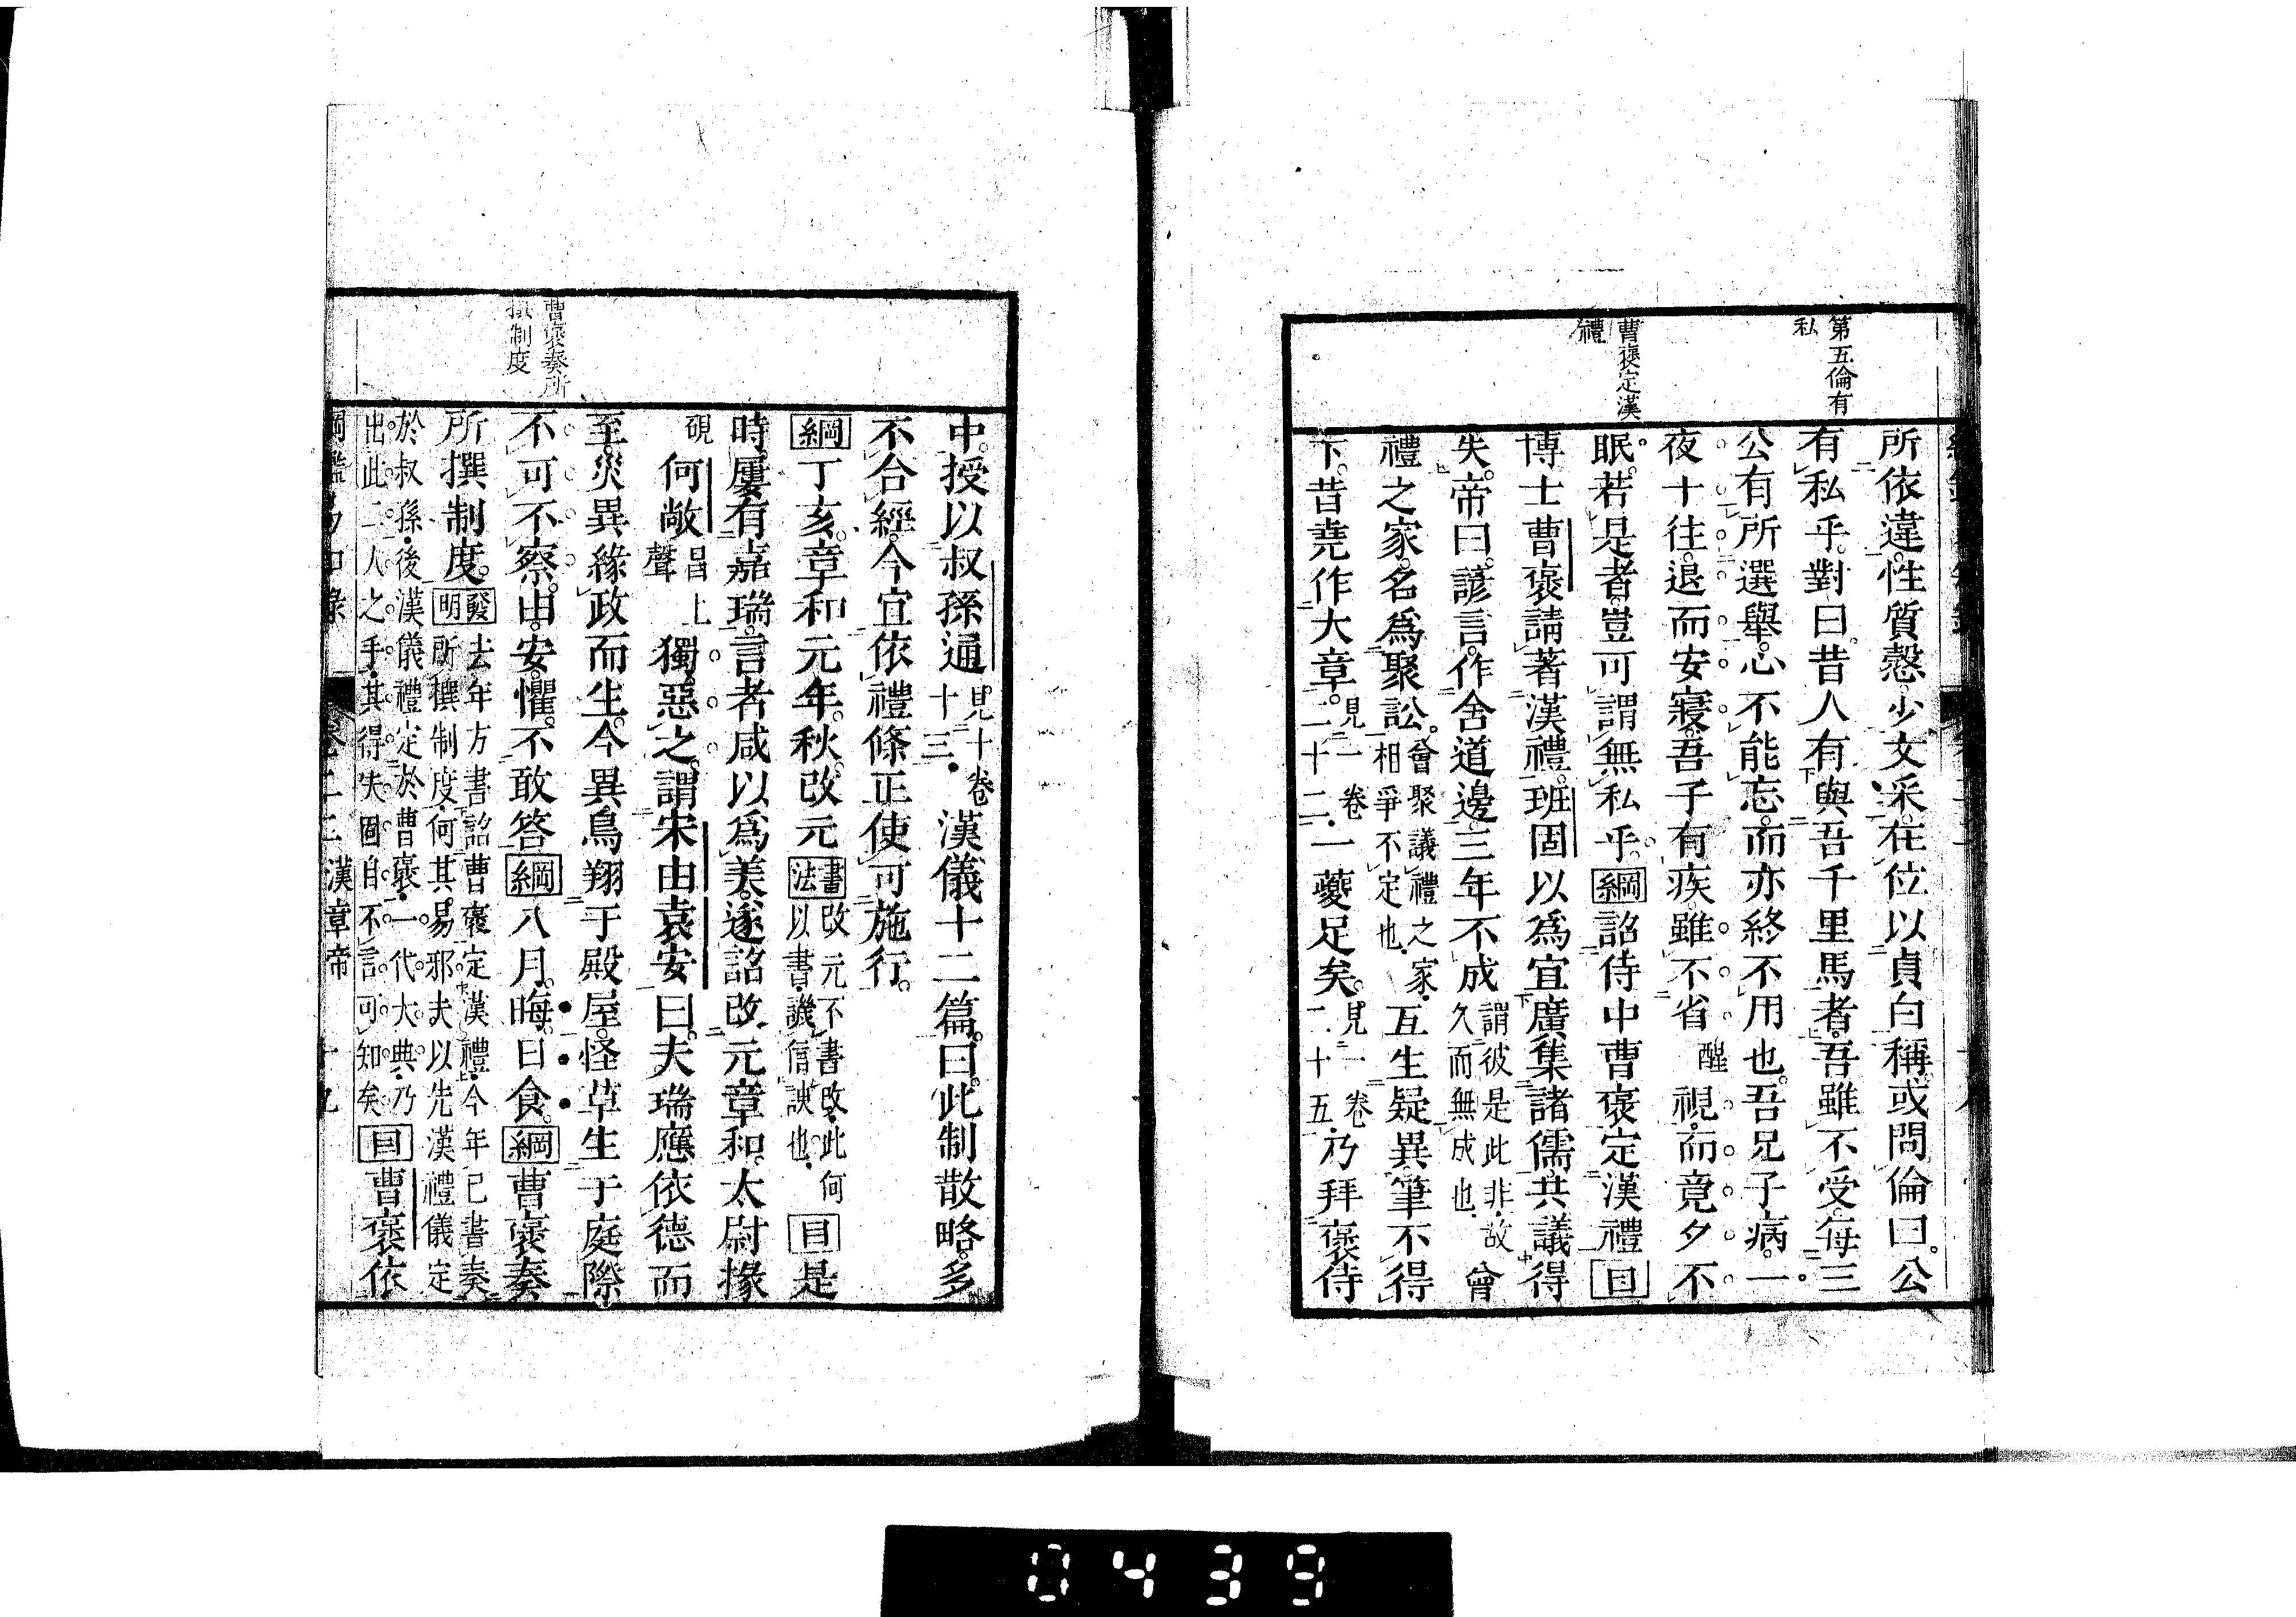 第五倫有
私
曹褒定漢
禮
所依違性質慤少文采在位以貞白稱或問倫曰公
有私乎對曰昔人有與吾千里馬者吾雖不受每三
公有所選舉心不能忘而亦終不用也吾兄子病一
夜十往退而安寢吾子有疾雖不省醒視而竟夕不
眠若是者豈可謂無私乎綱詔侍中曹褒定漢禮目
博士曹褒請著漢禮班固以爲宜廣集諸儒共議得
失帝曰諺言作舍道邊三年不成謂彼是此非故久而無成也會
禮之家名爲聚訟會聚議禮之家相爭不定也互生疑異筆不得
下昔堯作大章見一卷二十二一夔足矣見一卷二十五乃拜褒侍
曹褒奏所
撰制度
中授以叔孫通見十卷十三漢儀十二篇曰此制散略多
不合經今宜依禮條正使可施行
綱丁亥章和元年秋改元書法改元不書改此何以書譏信諛也目是
時屢有嘉瑞言者咸以爲美遂詔改元章和太尉掾
硯何敞昌上聲獨惡之謂宋由袁安曰夫瑞應依德而
至災異緣政而生今異鳥翔于殿屋怪草生于庭際
不可不察由安懼不敢答綱八月晦日食綱曹褒奏
所撰制度發明去年方書詔曹褒定漢禮今年已書奏所撰制度何其易邪夫以先漢禮儀定
於叔孫後漢儀禮定於曹褒一代大典乃
出此二人之手其得失固自不言可知矣目曹褒依
卷二十二漢章帝 十九
0439